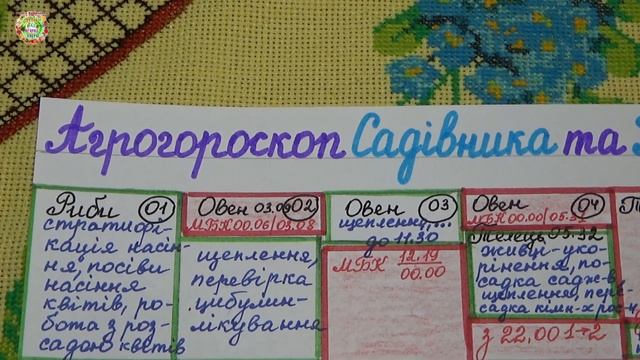 Агрогороскоп Садівника та
Риби 01
стратифі-
кація насін-
ня, посіви
насіння
квітів, ро-
бота з роз-
садою квітів
Овен 03.08 02
МБК 00.06/03.08
щеплення,
перевірка
цибулин-
лікування
Овен 03
щеплення,...
до 11.30
МБК 12.19
00.00
Овен 04
МБК 00.00/05.32
Телець 05.32
живці-уко-
рінення, по-
садка садж-в
щеплення, пере-
садка кімн-х рос-н
з 22.00 1→2